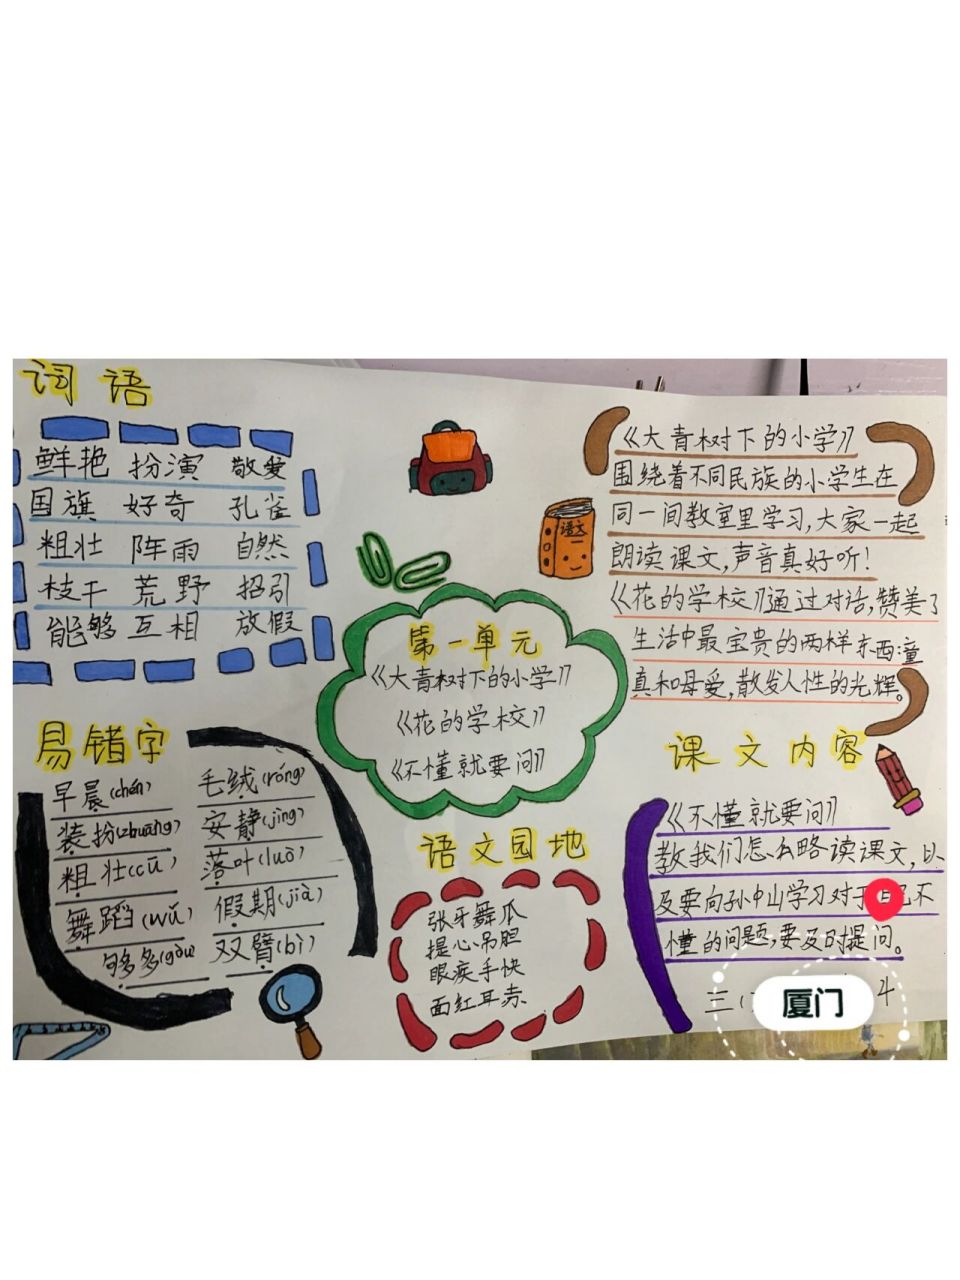 词语
鲜艳 扮演 敬爱
国旗 好奇 孔雀
粗壮 阵雨 自然
枝干 荒野 招引
能够 互相 放假
易错字
早晨(chén) 毛绒(róng)
装扮(zhuāng) 安静(jìng)
粗壮(cū) 落叶(luò)
舞蹈(wǔ) 假期(jià)
够多(gòu 双臂(bì)
语文
第一单元
《大青树下的小学》
《花的学校》
《不懂就要问》
语文园地
张牙舞爪
提心吊胆
眼疾手快
面红耳赤
《大青树下的小学》
围绕着不同民族的小学生在
同一间教室里学习,大家一起
朗读课文,声音真好听!
《花的学校》通过对话,赞美了
生活中最宝贵的两样东西:童
真和母爱,散发人性的光辉。
课文内容
《不懂就要问》
教我们怎么略读课文,以
及要向孙中山学习对于自己不
懂的问题,要及时提问。
三(
厦门